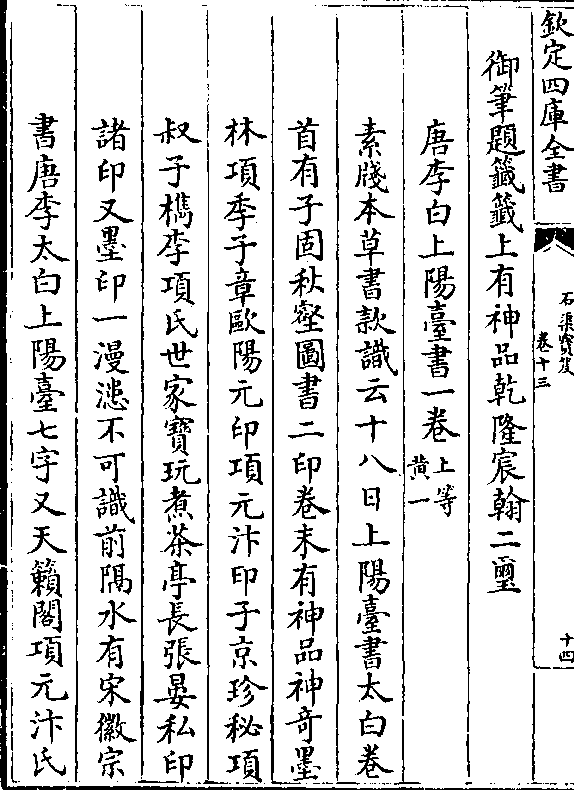 欽定四庫全書
石渠寶笈
卷十三
十四
御筆題籤籤上有神品乾隆宸翰二璽
唐李白上陽臺書一卷上等
黃一
素牋本草書款識云十八日上陽臺書太白卷
首有子固秋壑圖書二印卷末有神品神奇墨
林項季子章歐陽元印項元汴印子京珍秘項
叔子檇李項氏世家寶玩煮茶亭長張晏私印
諸印又墨印一漫漶不可識前隔水有宋徽宗
書唐李太白上陽臺七字又天籟閣項元汴氏